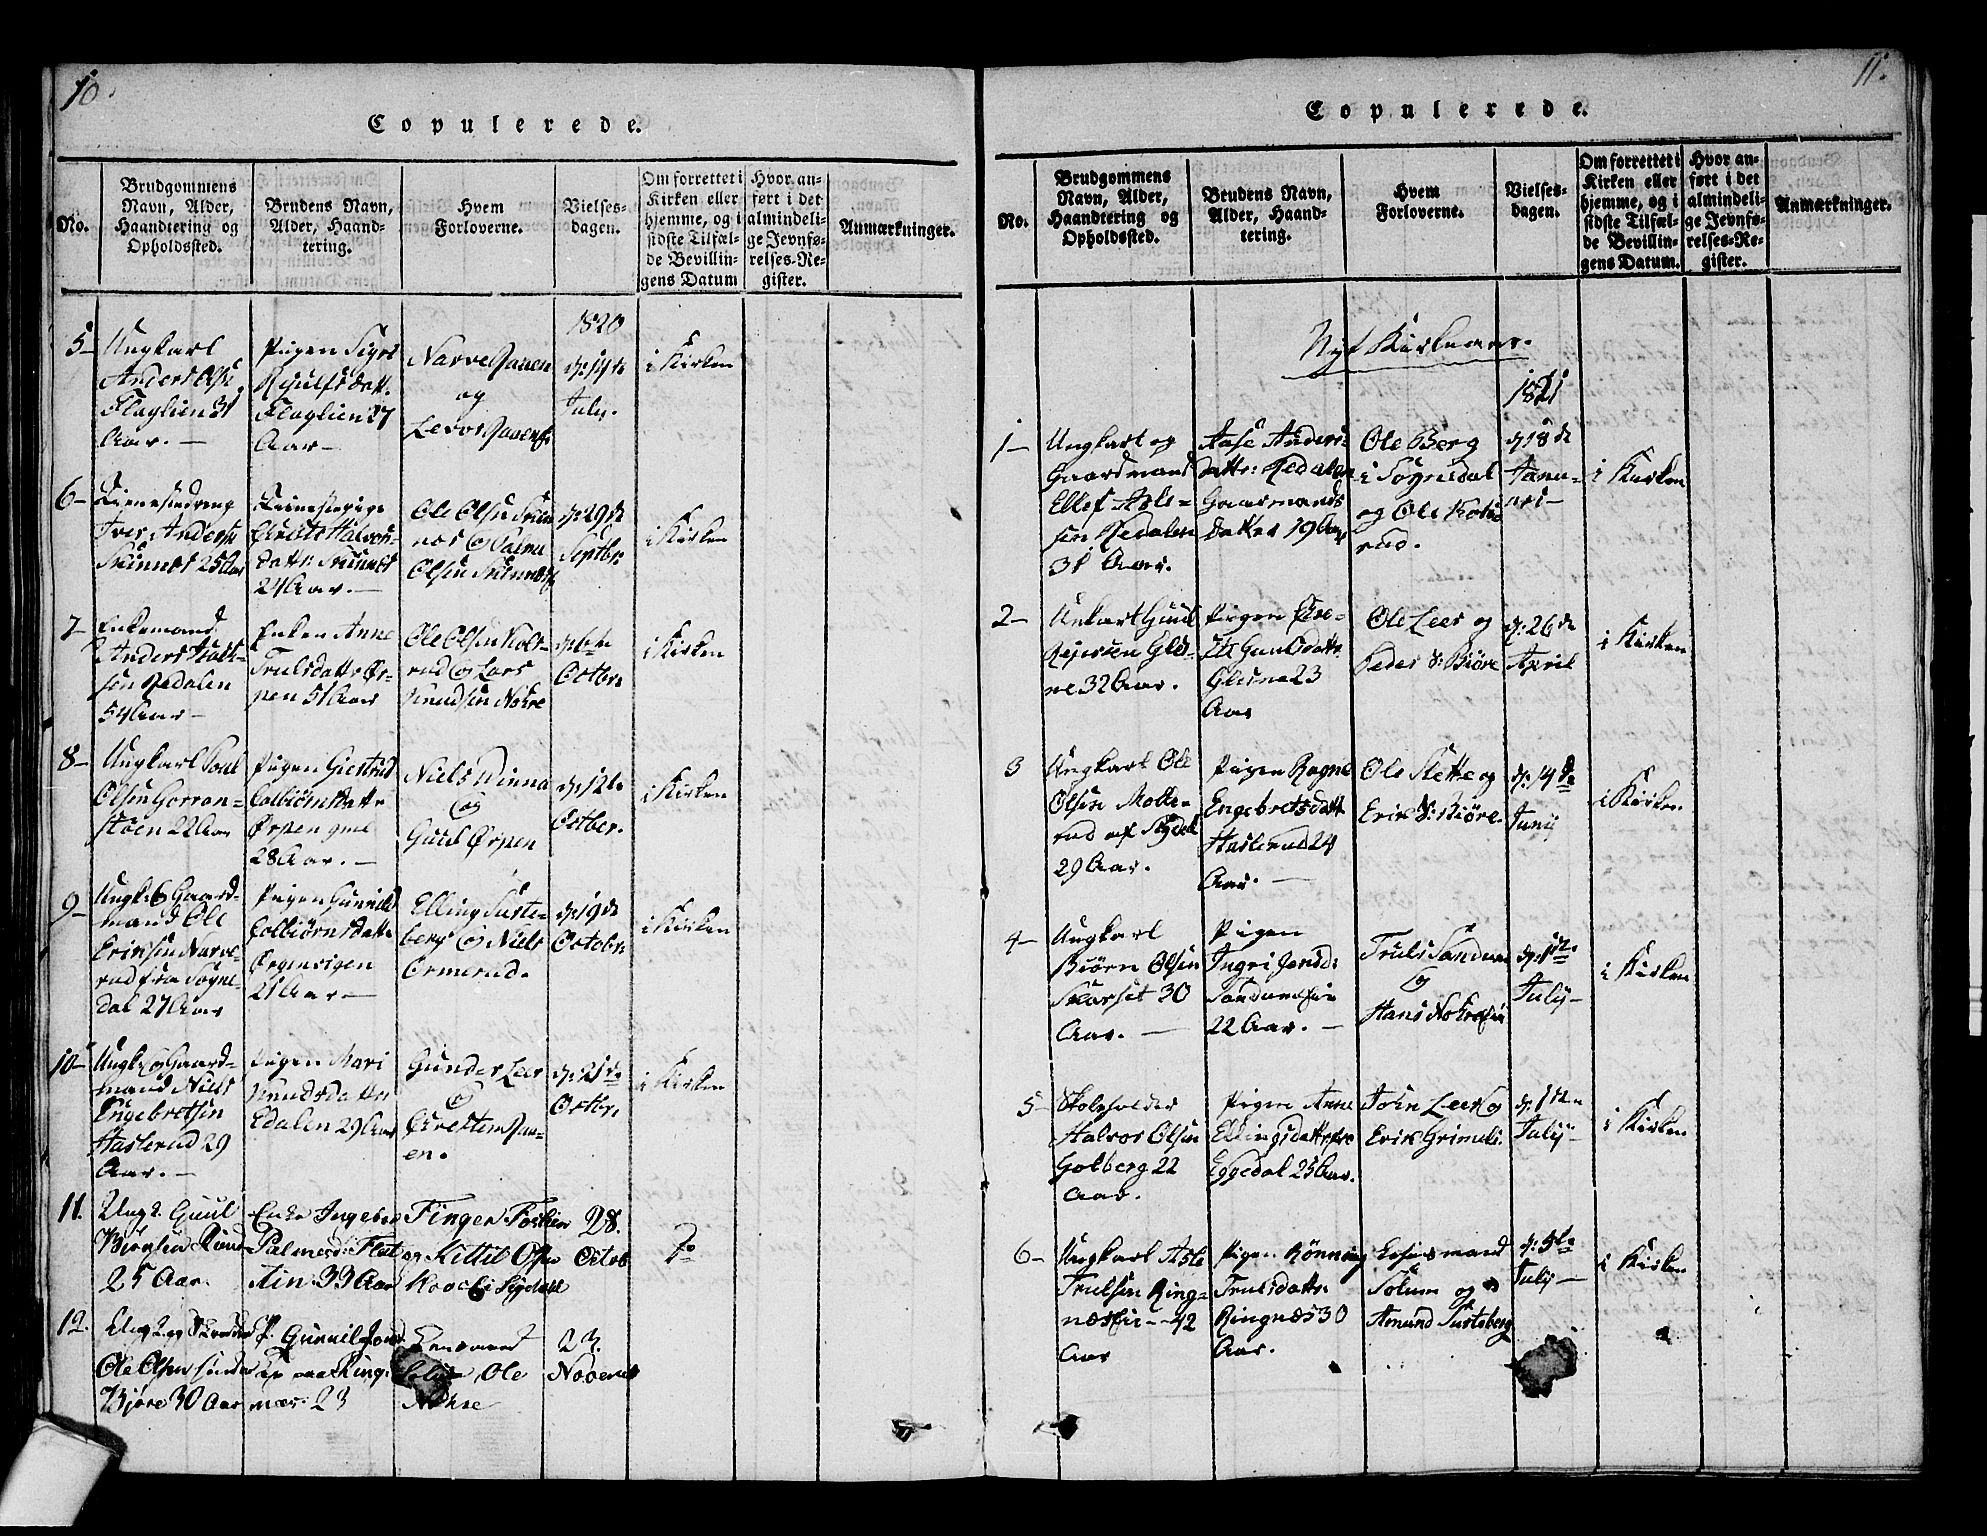 10.
Copulerede.
No.
Brudgommens
Navn, Alder,
Haandtering og
Opholdssted.
Brudens Navn,
Alder, Haand-
tering.
Hvem
Forloverne.
Vielses-
dagen.
Om forrettet i
Kirken eller
hjemme, og i
sidste Tilfæl-
de Bevillin-
gens Datum
Hvor an-
ført i det
almindeli-
ge Jevnfø-
relses-Re-
gister.
Anmærkninger.
1820
5-
Ungkarl
Anders Olse
Flaglien 31
Aar. -
Pigen Sigri
Flaglien 27
Aar -
Narve
og
d: 14de
July.
i Kirken
6-
Iver Anderse
25 Aar
Halvors-
datt:
24 Aar. -
Ole Olsen
Olsen
d: 29de
Septbr:
i Kirken
7-
Enkemand
Anders
sen Redalen
54 Aar -
Enken Anne
Trulsdattr Ør-
pen 51 Aar
Ole Olsen Kolt-
rud og Lars
Knudsen Nohre
d: 6te
Octbr:
i Kirken
8-
Ungkarl Poul
Olsen Gorran-
støen 22 Aar
Pigen Giertrud
Colbiørnsdattr
Ørpen gml
28 Aar. -
Niels Winna
og
Guul Ørpen
d: 12te
Octber.
i Kirken
9-
Ungk: og Gaard-
mand Ole
Eriksen Narve-
rud fra Sogne-
dal 27 Aar
Pigen Gunnild
Colbiørnsdattr
Ørpeneigen
21 Aar -
Elling Tuste-
berg og Niels
Ormerud.
d: 19de
Octobr:
i Kirken
10-
Ungk: og Gaard-
mand Niels
Engebretsen
Hasterud 29
Aar. -
Pigen Mari
Knudsdattr
Edalen 29 Aar
Gunder Leer
og
Christen
en.
d: 21de
Octbr:
i Kirken
11.
Ungk. Guul
Bjørnsen
25 Aar.
Enke Ingebor
Palmesd: Flat
33 Aar
Finger
og Kittil Olsen
i Sigdal
28.
Octob
do
12.
Ungk. og
Ole Olsen søndre
Bjøre 30 Aar
P. Gunnild
paa Ring-
næs: 23
Ole
Nohre
23.
November
11.
Copulerede.
No.
Brudgommens
Navn, Alder,
Haandtering og
Opholdssted.
Brudens Navn,
Alder, Haand-
tering.
Hvem
Forloverne.
Vielses-
dagen.
Om forrettet i
Kirken eller
hjemme, og i
sidste Tilfæl-
de Bevillin-
gens Datum.
Hvor an-
ført i det
almindeli-
ge Jevnfø-
relses-Re-
gister.
Anmærkninger.
Nyt Kirkeaar.
1821
1-
Ungkarl og
Gaardmand
Ellef Asle-
sen Redalen
31 Aar.
Aase Anders-
dattr: Redalen
Gaarmands
datter 19 Aar
Ole Berg
i Sognedal
og Ole Kolse
rud.
d: 18de
Janu-
ari -
i Kirken
2-
Unkarl Guul
Rejersen Gles-
ne 32 Aar.
Pigen
Gulsdattr
Glesne 23
Aar
Ole Leer og
Peder S: Biøre
d: 26de
April
i Kirken
3
Ungkarl Ole
Olsen Molte-
rud af Sigdal
29 Aar.
Pigen Ragne
Engebretsdatt
Hasterud 24
Aar. -
Ole Slette og
Erik S: Biøre.
d: 14de
Junii
i Kirken
4-
Ungkarl
Biørn Olsen
Skarset 30
Aar. -
Pigen
Ingri Jensd:
22 Aar. -
Truls Sandum
og
Hans
d: 1ste
July -
i Kirken
5-
Halvor Olsen
Golberg 22
Aar.
Pigen Anne
Ellingsdattr fra
Eggedal 25 Aar.
John Leer og
Erik Grimeli.
d: 1ste
July -
i Kirken
6-
Ungkarl Asle
Trulsen Ring-
næseie - 42
Aar
Pigen Rønning
Trulsdattr
Ringnæs 30
Aar.
mand
Solum og
Amund Tusteberg
d: 5te
July -
i Kirken